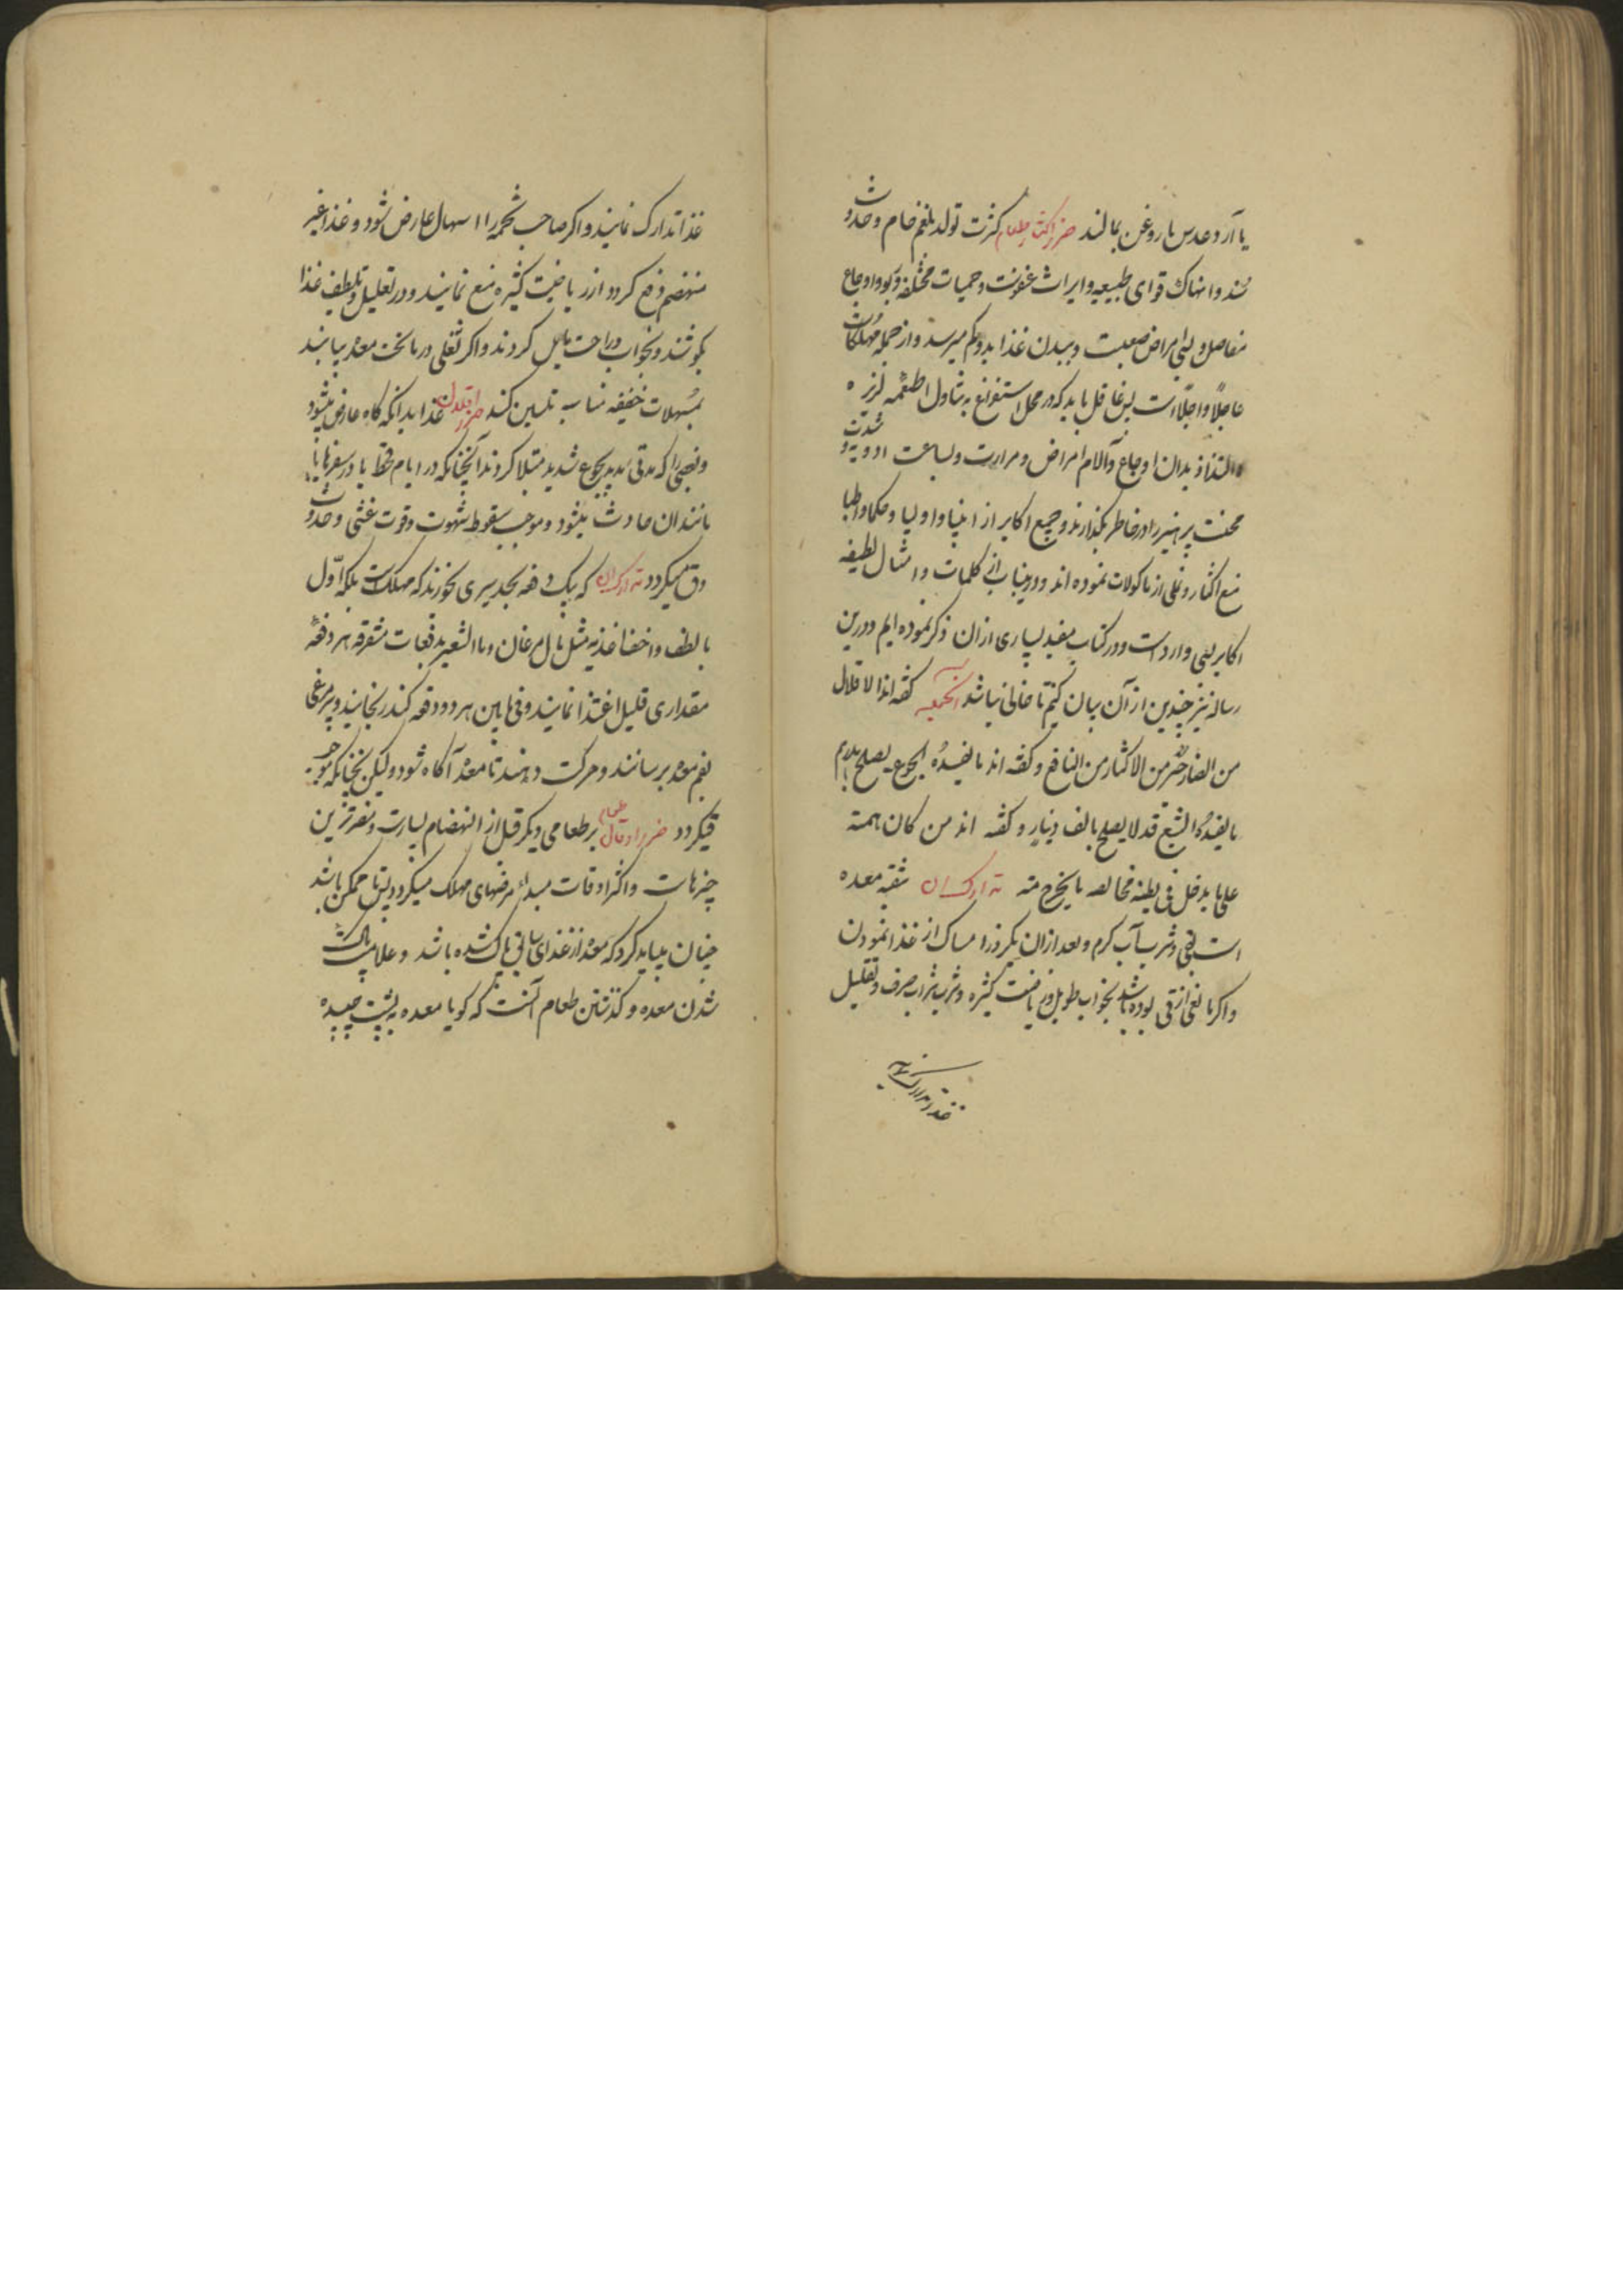 یا آرد عدس با روغن بمالند ضرر اکثار طعام کثرت تولد بلغم خام و حدوث
سدد و انهاک قوای طبیعیه و ایراث عفونت و حمیات مختلفه و اوجاع
مفاصل و بسی امراض صعبست و ببدن غذا بد و کم میرسد و از جمله مهلکات
عاجلاً و اجلاً است پس عاقل باید که در محل استفراغ به تناول اطعمه لذیزه
و التذاذ بدان اوجاع و آلام امراض و مرارت و بشاعت ادویه و شدت
محنت پرهیز را در خاطر بگذارند و جمیع اکابر از انبیا و اولیا و حکما و اطبا
منع اکثار و نهی از ماکولات نموده اند و درینباب از کلمات و امثال لطیفه
اکابر بسی وارد است و در کتاب مفید بسیاری از آن ذکر نموده ایم و درین
رساله نیز چندین از آن بیان کنیم تا خالی نباشد گفته اند الاقلال
من الضار خیر من الاکثار من النافع و گفته اند ما یفسده الجوع یصلح بدرهم
ما یفسده الشبع قد لا یصلح بالف دینار و گفته اند من کان همته
علی ما یدخل فی بطنه فحاله ما یخرج منه تدارک آن تنقیه معده
است بقی و شرب آب گرم و بعد از آن یکروز امساک از غذا نمودن
و اگر مانعی از قی بوده باشد بخواب طویل و ریاضت کثیره و شرب شراب صرف و تقلیل
غذا تدارک نمایند
غذا تدارک نمایند و اگر صاحب تخمه را اسهال عارض شود و غذا غیر
منهضم دفع گردد از ریاضت کثیره منع نمایند و در تقلیل و تلطیف غذا
بکوشند و بخواب و راحت مایل گردند و اگر ثقلی در ما تحت معده بیابند
بمسهلات خفیفه مناسب تلیین کنند ضرر اقلال غذا بدانکه گاه عارض میشود
و بعضی را که مدتی مدید بجوع شدید مبتلا گردند آنچنانکه در ایام قحط یا در سفرها یا
مانند ان حادث میشود و موجب سقوط شهوت و قوت غشی و حدوث
دق میگردد تدارک آن که یک دفعه بحد سیری نخورند که مهلکست بلکه اول
بالطف و اخف اغذیه مثل بال مرغان و ماء الشعیر بدفعات متفرقه هر دفعهٔ
مقداری قلیل اغتذا نمایند و فی مابین هر دو دفعه کندر بخایند و پر مرغی
بفم معده برسانند و حرکت دهند تا معده آگاه شود و لیکن نچنانکه موجب
قی گردد ضرر ادخال طعام بر طعامی دیگر قبل از انهضام بسیارست و مضرترین
چیزهاست و اکثر اوقات مبداء مرضهای مهلک میگردد پس تا ممکن باشد
چنان میباید کرد که معده از غذای سابق پاک شده باشد و علامت پاک
شدن معده و گذشتن طعام آنست که گویا معده به پشت چسپیده